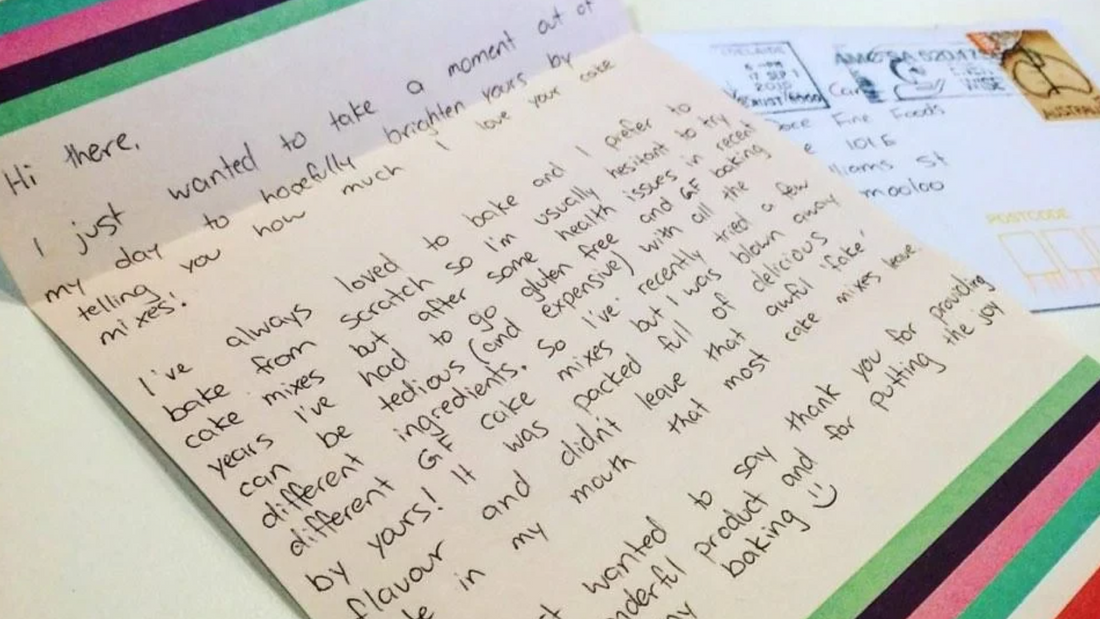 Hi there,
I just wanted to take a moment out of
my day to hopefully brighten yours by
telling you how much I love your cake
mixes!
I've always loved to bake and I prefer to
bake from scratch so I'm usually hesitant to try
cake mixes but after some health issues in recent
years I've had to go gluten free and GF baking
can be tedious (and expensive) with all the
different ingredients. So I've recently tried a few
different GF cake mixes but I was blown away
by yours! It was packed full of delicious
flavour and didn't leave that awful 'fake'
in my mouth that most cake mixes leave.
wanted to say thank you for providing
product and for putting the joy
baking
ADELAIDE
6 - PM
17 SEP
2015
AUST 5000
Fine Foods
101E
St
POSTCODE
AUSTRALIA